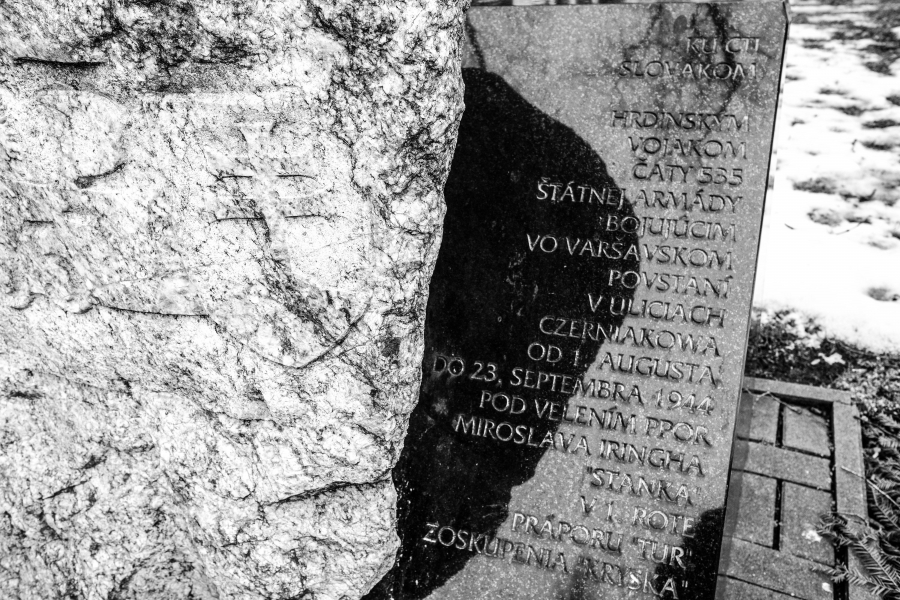 KU CTI
SLOVÁKOM
HRDINSKÝM
VOJAKOM
ČATY 535
ŠTÁTNEJ ARMÁDY
BOJUJÚCIM
VO VARŠAVSKOM
POVSTANÍ
V ULICIACH
CZERNIAKOWA
OD 1. AUGUSTA
DO 23. SEPTEMBRA 1944
POD VELENÍM PPOR
MIROSLAVA IRINGHA
"STANKA"
V 1. ROTE
PRÁPORU "TUR"
ZOSKUPENIA "KRYSKA"